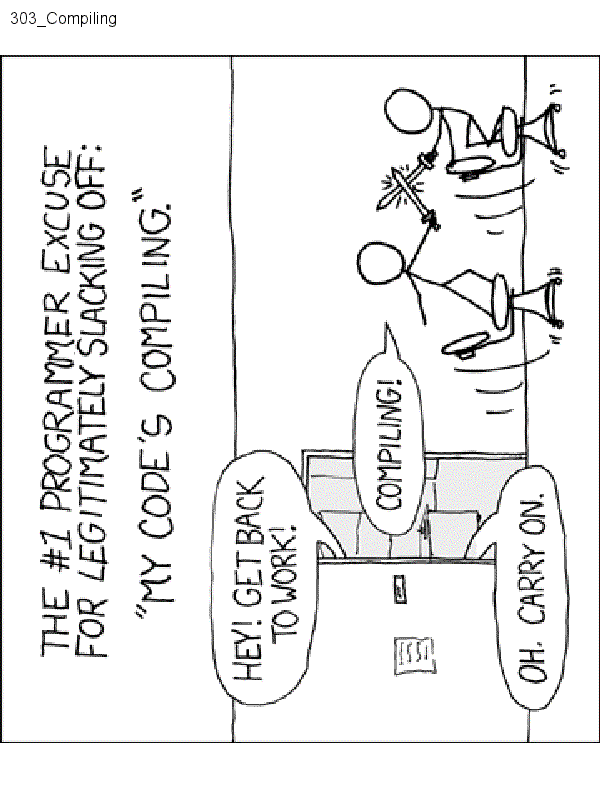 303_Compiling
THE #1 PROGRAMMER EXCUSE
FOR LEGITIMATELY SLACKING OFF:
"MY CODE'S COMPILING."
HEY! GET BACK
TO WORK!
COMPILING!
OH. CARRY ON.